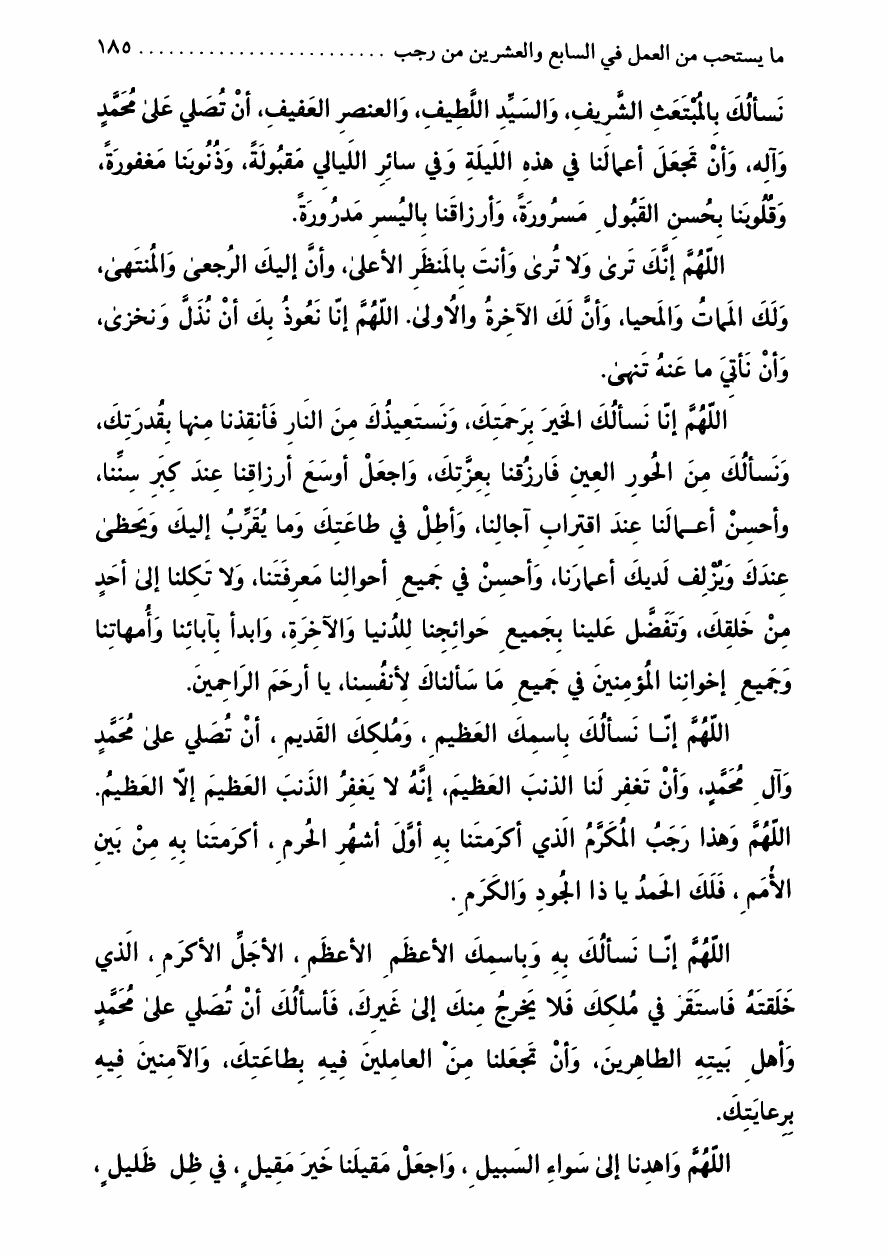 ما يستحب من العمل في السابع والعشرين من رجب ......................... ١٨٥
نَسألُكَ بِالمُبْتَعَثِ الشَّرِيفِ، وَالسَيِّدِ اللَّطِيفِ، وَالعنصرِ العَفيفِ، أنْ تُصَلي عَلىٰ مُحَمَّدٍ
وَآلِهِ، وَأنْ تَجعَلَ أعمالَنا في هذهِ اللَيلَةِ وَفي سائرِ اللَيالي مَقبُولَةً، وَذُنُوبَنا مَغفورَةً،
وَقُلُوبَنا بِحُسنِ القَبُولِ مَسرُورَةً، وَأرزاقَنا بِاليُسرِ مَدرُورَةً.
اللّهُمَّ إنَّكَ تَرىٰ وَلا تُرىٰ وَأنتَ بِالمَنظَرِ الأعلىٰ، وأنَّ إليكَ الرُجعىٰ وَالمُنتَهىٰ،
وَلَكَ المَماتُ وَالمَحيا، وَأنَّ لَكَ الآخِرةُ والاُولىٰ. اللّهُمَّ إنّا نَعُوذُ بِكَ أنْ نُذَلَّ وَنخزىٰ،
وَأنْ نَأتيَ ما عَنهُ تَنهىٰ.
اللّهُمَّ إنّا نَسألُكَ الخَيرَ بِرَحمَتِكَ، وَنَستَعِيذُكَ مِنَ النارِ فَأنقِذنا مِنها بِقُدرَتِكَ،
وَنَسألُكَ مِنَ الحُورِ العينِ فَارزُقنا بِعزَّتِكَ، وَاجعَلْ أوسَعَ أرزاقِنا عِندَ كِبَرِ سِنِّنا،
وأحسِنْ أعـمالَنا عِندَ اقتِرابِ آجالِنا، وَأطِلْ في طاعَتِكَ وَما يُقَرِّبُ إليكَ وَيَحظىٰ
عِندَكَ وَيُزْلِف لَديكَ أعمارَنا، وَأحسِنْ في جَميعِ أحوالِنا مَعرِفَتَنا، وَلا تَكِلنا إلىٰ أحَدٍ
مِنْ خَلقِكَ، وَتَفَضَّل عَلينا بِجَميعِ حَوائِجِنا لِلدُنيا وَالآخِرَةِ، وَابدأ بِآبائِنا وَأُمهاتِنا
وَجَميعِ إخوانِنا المُؤمِنينَ في جَميعِ مَا سَألناكَ لأنفُسِنا، يا أرحَمَ الرَاحِمينَ.
اللّهُمَّ إنّـا نَسألُكَ بِاسمِكَ العَظيمِ ، وَمُلكِكَ القَديمِ ، أنْ تُصَلي علىٰ مُحَمَّدٍ
وَآلِ مُحَمَّدٍ، وَأنْ تَغفِر لَنا الذنبَ العَظيمَ، إنَّهُ لا يَغفِرُ الذَنبَ العَظيمَ إلّا العَظيمُ.
اللّهُمَّ وَهذا رَجَبُ المُكَرَّمُ الَذي أكرَمتَنا بِهِ أوَّلَ أشهُرِ الحُرمِ ، أكرَمتَنا بِهِ مِنْ بَينِ
الأُمَمِ ، فَلَكَ الحَمدُ يا ذا الجُودِ وَالكَرَمِ .
اللّهُمَّ إنّـا نَسألُكَ بِهِ وَبِاسمِكَ الأعظَمِ الأعظَمِ ، الأجَلِّ الأكرَمِ ، الَذي
خَلَقتَهُ فَاستَقَرَ في مُلكِكَ فَلا يَخرجُ مِنكَ إلىٰ غَيرِكَ، فَأسألُكَ أنْ تُصَلي علىٰ مُحَمَّدٍ
وَأهلِ بَيتِهِ الطاهِرينَ، وَأنْ تَجعَلنا مِنَ العامِلينَ فيهِ بِطاعَتِكَ، وَالآمِنينَ فيهِ
بِرِعايَتِكَ.
اللّهُمَّ وَاهدِنا إلىٰ سَواءِ السَبيلِ ، وَاجعَلْ مَقيلَنا خَيرَ مَقِيلٍ ، في ظِلٍ ظَليلٍ ،